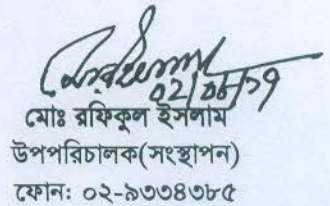 ০২/০৮/১৭
মোঃ রফিকুল ইসলাম
উপপরিচালক(সংস্থাপন)
ফোন: ০২-৯৩৩৪৩৮৫